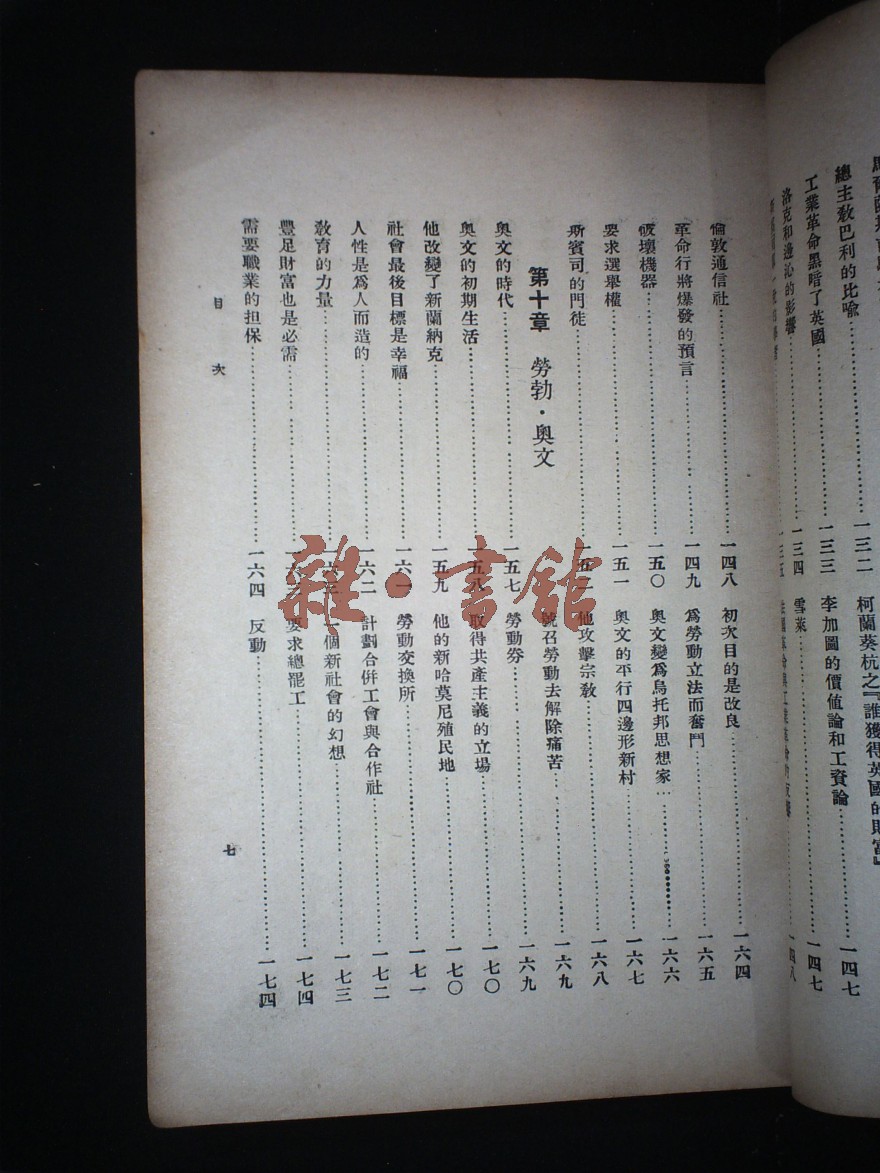 總主教巴利的比喻……一三二
工業革命黑暗了英國……一三三
洛克和邊沁的影響……一三四
一三五
柯蘭葵杭之『誰獲得英國的財富』
李加圖的價值論和工資論……一四七
雪萊……一四七
一四八
倫敦通信社……一四八
革命行將爆發的預言……一四九
破壞機器……一五〇
要求選舉權……一五一
斯賓司的門徒……一五二
第十章 勞勃·奧文
奧文的時代……一五七
奧文的初期生活……一五八
他改變了新蘭納克……一五九
社會最後目標是幸福……一六一
人性是爲人而造的……一六二
教育的力量……一六三
豐足財富也是必需……一六三
需要職業的担保……一六四
初次目的是改良……一六四
爲勞動立法而奮鬥……一六五
奧文變爲烏托邦思想家……一六六
奧文的平行四邊形新村……一六七
他攻擊宗教……一六八
號召勞動去解除痛苦……一六九
勞動券……一六九
取得共產主義的立場……一七〇
他的新哈莫尼殖民地……一七〇
勞動交換所……一七一
計劃合併工會與合作社……一七二
一個新社會的幻想……一七三
要求總罷工……一七四
反動……一七四
目次
七
雜·書館